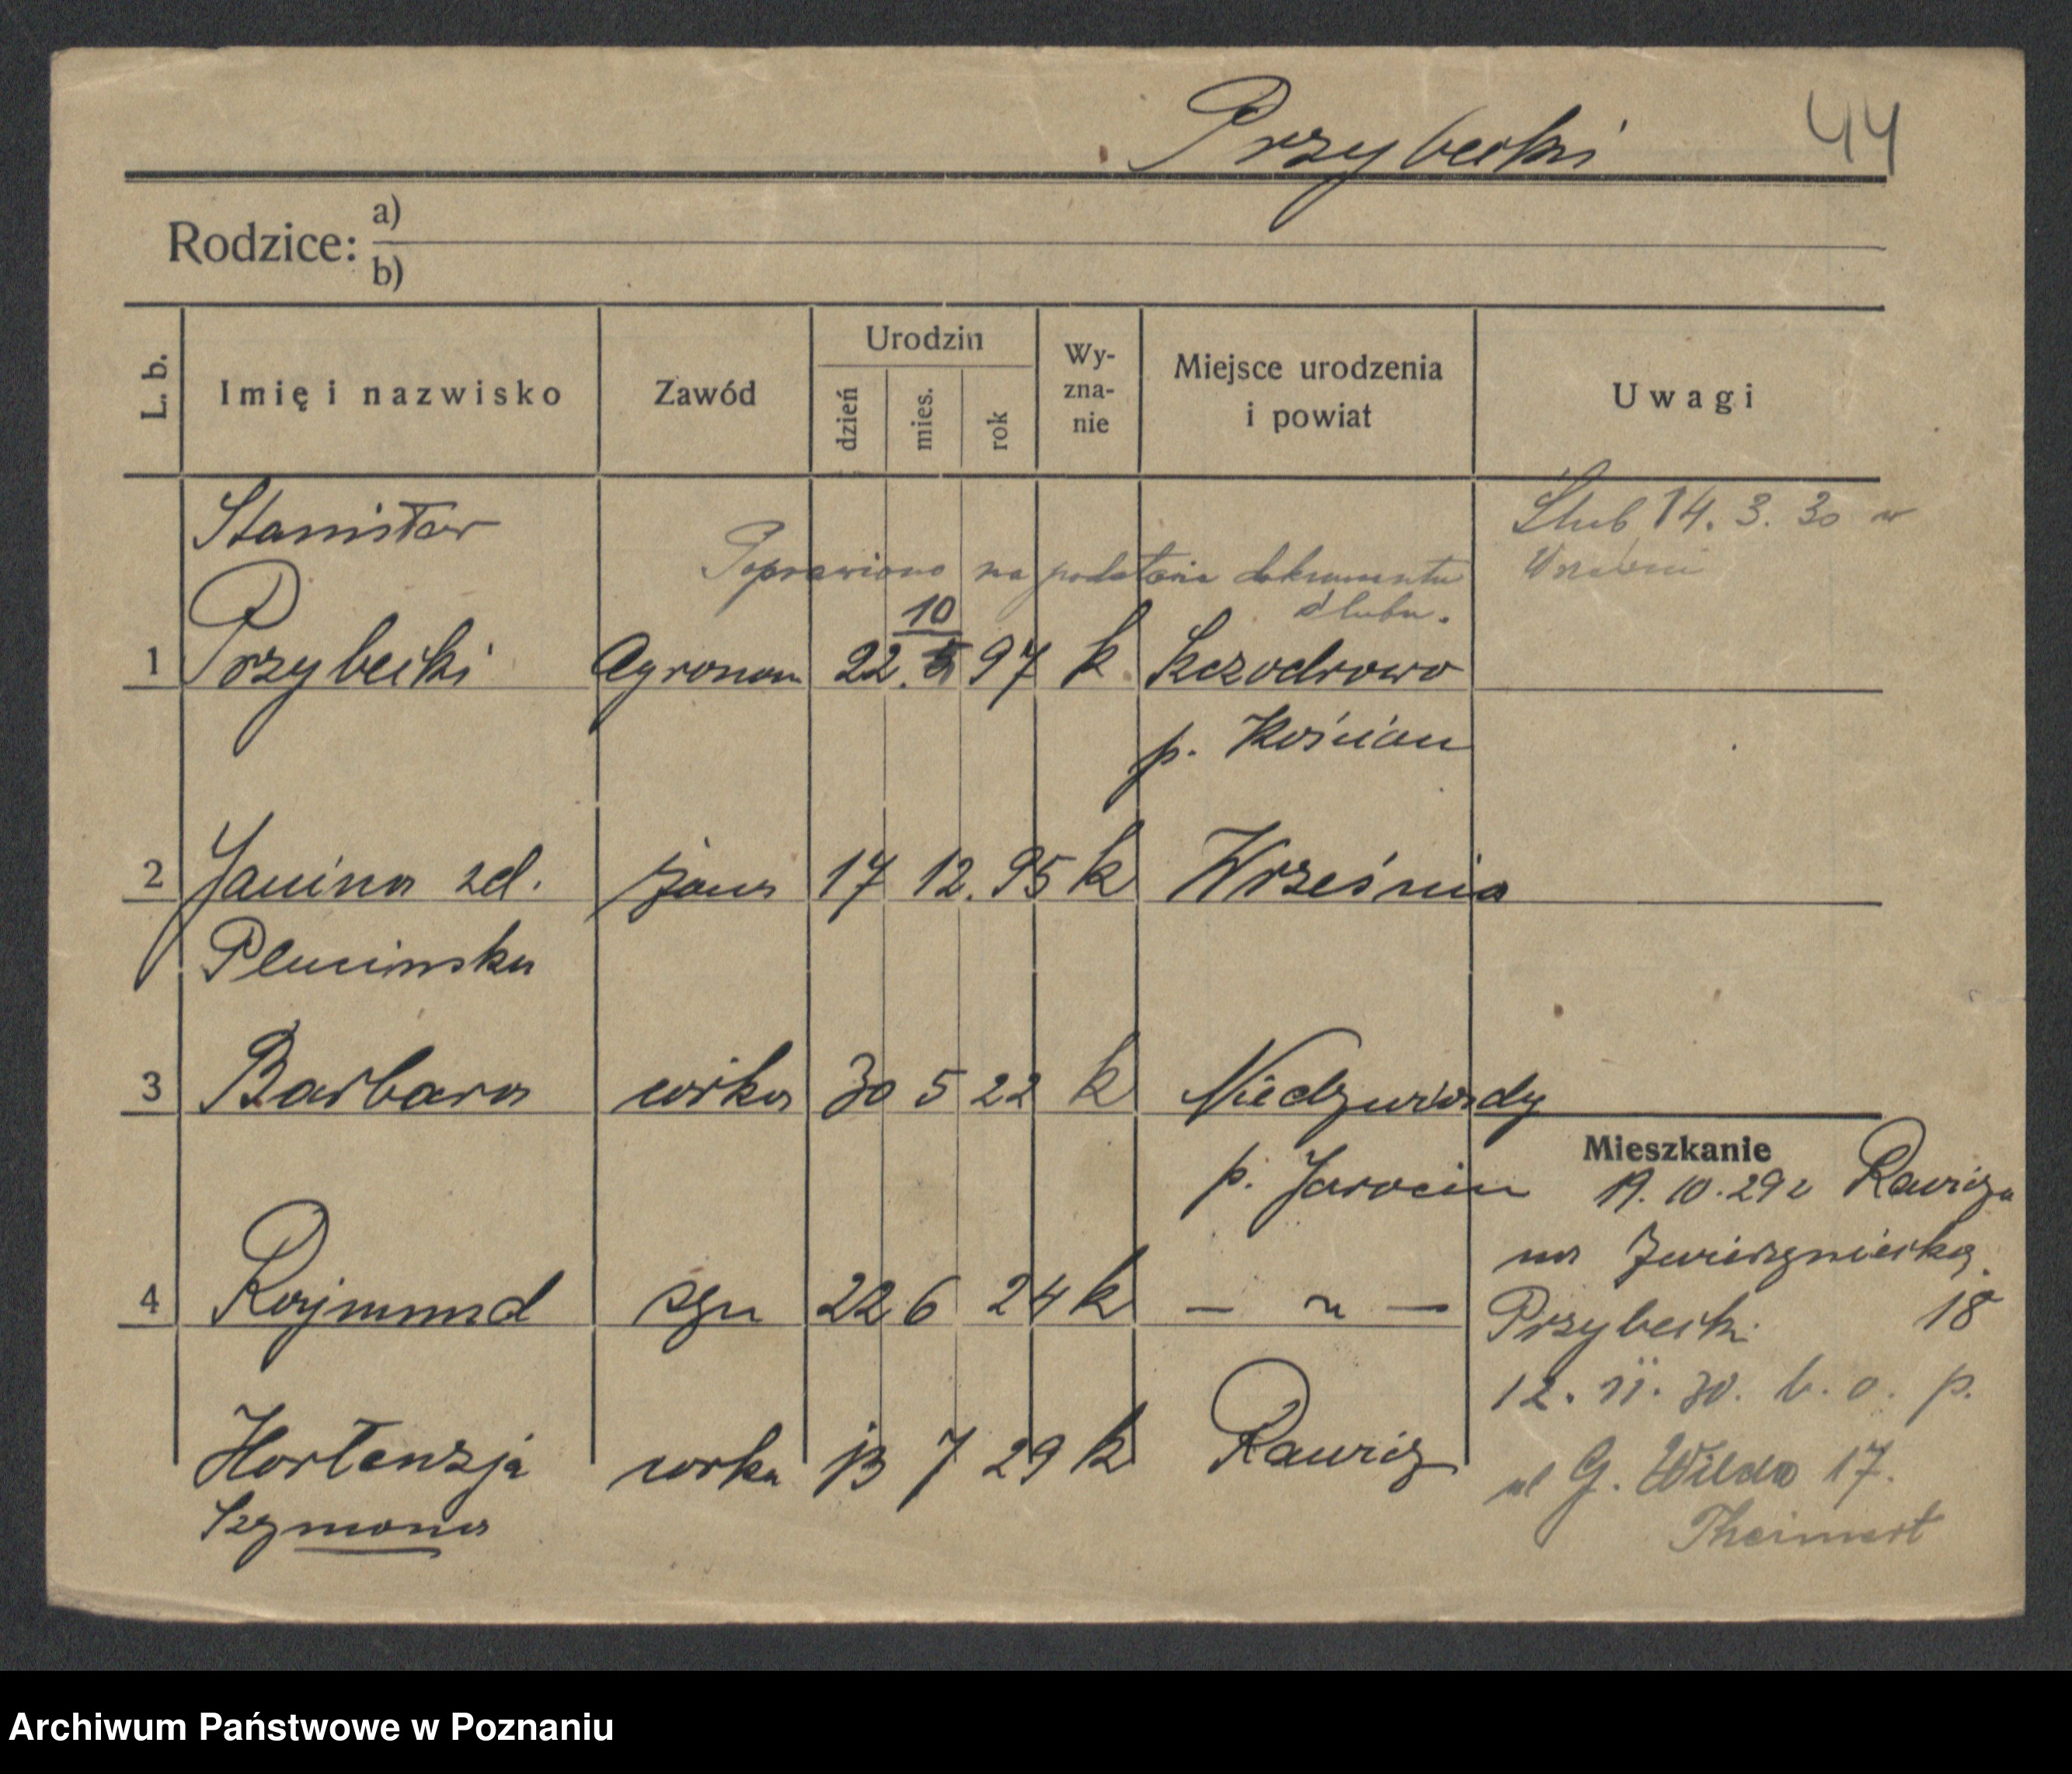 Przybecki 44
Rodzice: a)
b)
L. b. Imię i nazwisko Zawód Urodzin dzień mies. rok Wy-zna-nie Miejsce urodzenia i powiat Uwagi
Stanisław Ślub 14. 3. 30 w
Poprawiono na podstawie dokumentu
ślubu.
10
1 Przybecki Agronom 22. 5 97 k Szczodrowo
p. Kościan
2 Janina zd. żona 17 12. 95 k Września
Plucinska
3 Barbara córka 30 5 22 k Niedzwiady
p. Jarocin
Mieszkanie
19. 10. 29 z Rawicza
na Zwierzyniecką
4 Rajmund syn 22 6 24 k — " — Przybecki 18
12. 11. 30. b. o. p.
Hortenzja corka 13 7 29 k Rawicz
ul G. Wilda 17.
Szymona
Theinert
Archiwum Państwowe w Poznaniu